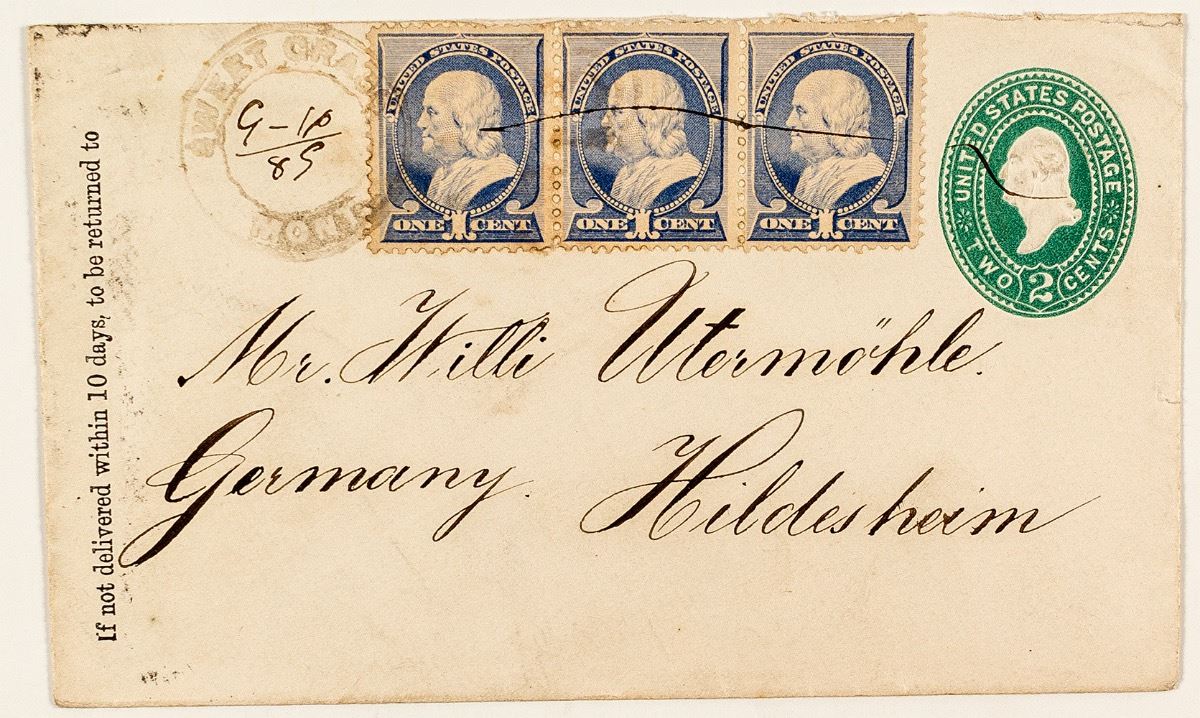 SWEET GRA
9-10
89
MONT
UNITED STATES POSTAGE
ONE 1 CENT
UNITED STATES POSTAGE
ONE 1 CENT
UNITED STATES POSTAGE
ONE 1 CENT
UNITED STATES POSTAGE
TWO 2 CENTS
If not delivered within 10 days, to be returned to
Mr. Willi Utermöhle.
Germany. Hildesheim